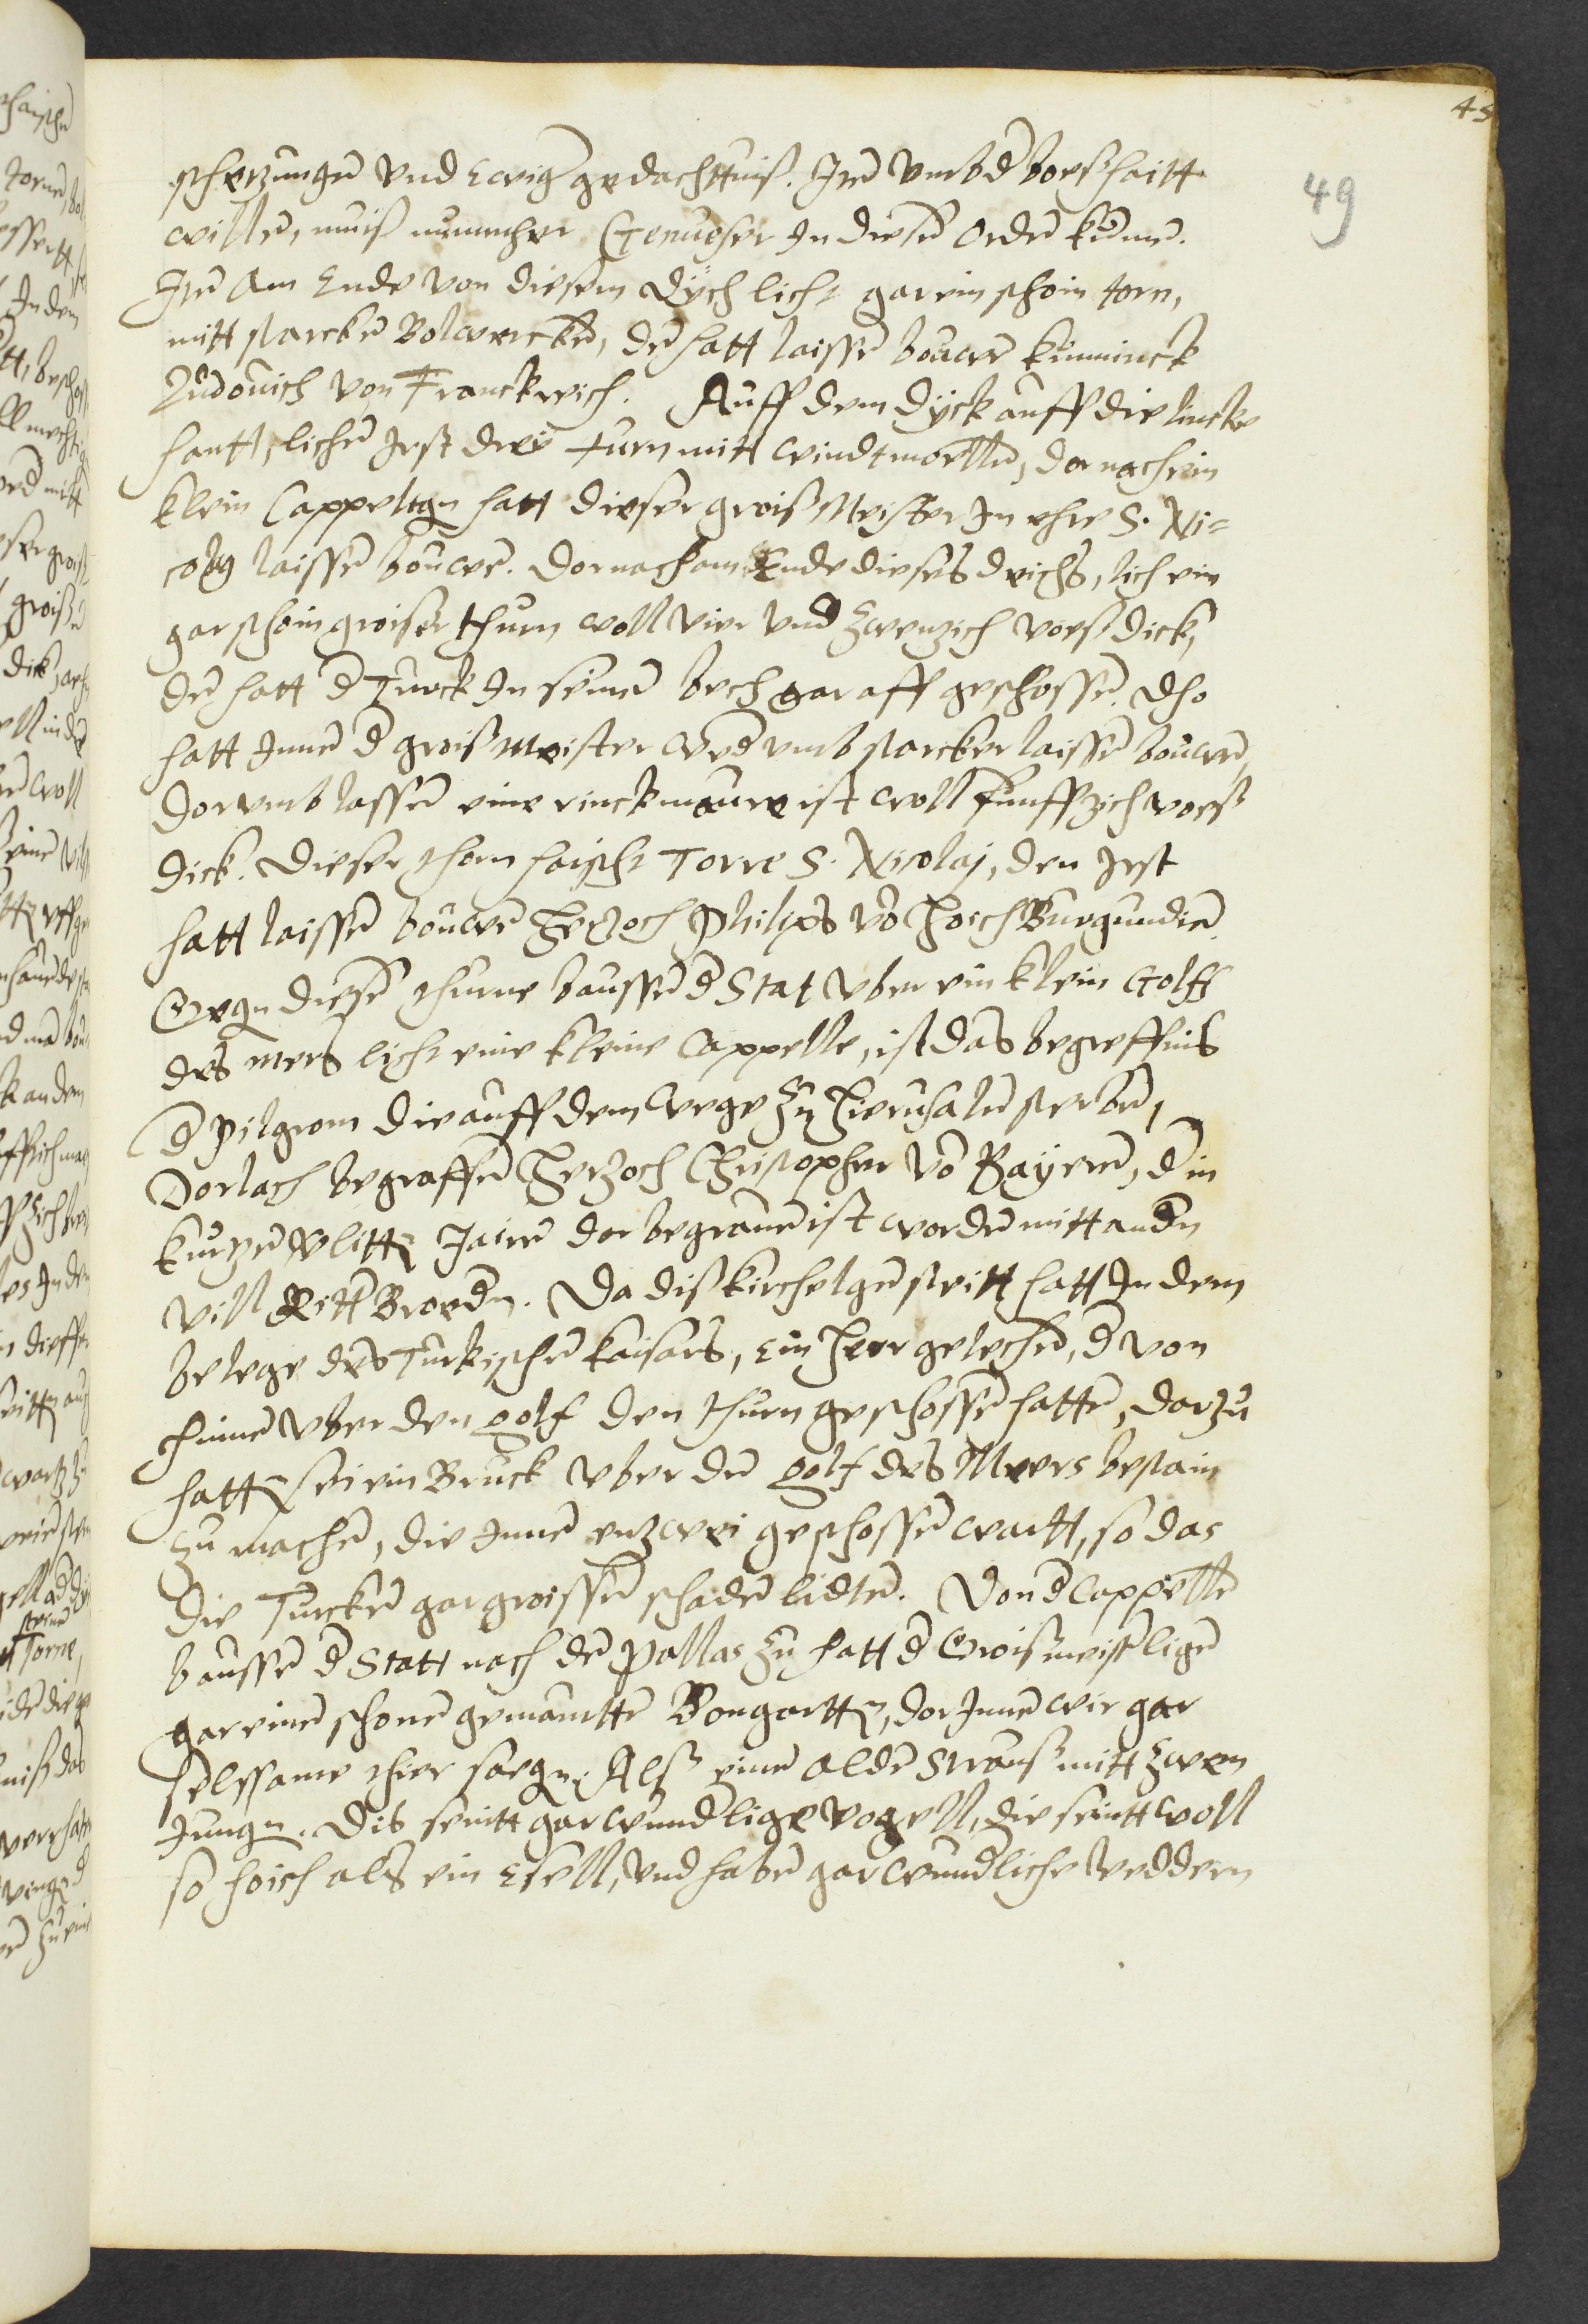 45
49
schetzungen vnd ewig gedachttnis. Item vmb d boeshaitt
willen, muis nummher Genueser In diesen Orden kumen.
Item Am Ende von diesem dÿch licht gar ein schoin torn,
mitt starcken Bolwercken, den hatt laissen bouwen kunninck
Ludouich von Franckreich. Auff dem dÿck auff die lincke
hantt, lichen Irst dreÿ turn mitt windtmoellen, dar nach ein
klein Cappeltgn hatt dieser grois Meister In ehre S. Ni=
colas laissen bouwen. Dor nach am Ende dieses dichs, lich ein
gar schoin groiser thurn woll vier vnd zwenzich voess dick,
den hatt d Turck In seinem belech gar aff geschossen. Dho
hatt Innen d grois Meister widd vmb starcker laissen bouwen,
dar vmb lassen eine rinckmaure ist woll funffzich voess
dick. Dieser thorn haischt Torre S. Nicolaj, den Irst
hatt laissen bouwen Hertzoch Philips vo Hoich Burgundien.
Gegn diesen thurne baussen d Stat vber ein klein Golff
des mers licht eine kleine Cappelle, ist das begreffnis
d Pilgrom die auff dem wege zu Hierusalem sterben,
Dorlach begraffen Hertzoch Christopher vo Bayeren, d in
kurtzen Jairen dor begrauen ist worden mitt andn
vill Ritt Broedn. Da dis kirchelgen steitt hatt In dem
belege des Turkischen kaisars, ein Heer gelechen, d von
thinne vber den golf den thurn geschossen hatte, darzu
hatt sei ein Bruck vber den golf des Meers bestain
zu machen, die Innen entzwei geschossen wartt, so das
die Turcken gar groissen schaden lidten. Von d Cappelle
baussen d Statt nach den Pallas zu hatt d Groismeist ligen
gar einen schonen gemaurtten Bongartt, dar Innen wir gar
selssame thier saegn. Als einen alden Straus mitt zwen
Jungn. Dis seintt gar wundlige vogell, die seintt woll
so hoich als ein Esell, vnd haben gar wundliche veddern